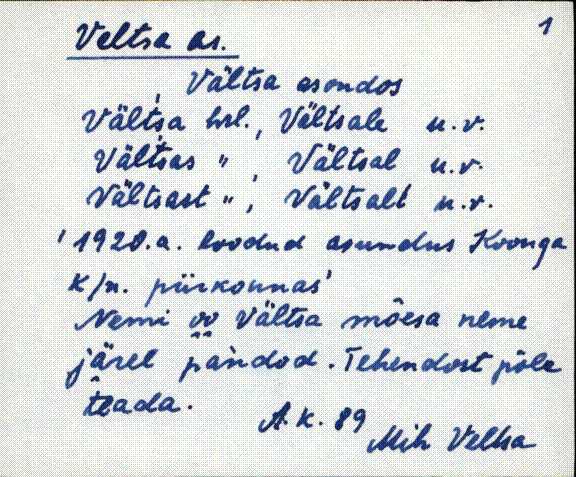 1
Veltsa as.
, Vältsa asondos
Vältsa hrl., Vältsale u.v.
Vältsas ", Vältsal u.v.
Vältsast ", Vältsalt u.v.
'1920.a. loodud asundus Koonga
K/n. piirkonnas'
Nemi oo Vältsa mõesa neme
järel pandod. Tehendost põle
teada.
A.K. 89
Mih Veltsa